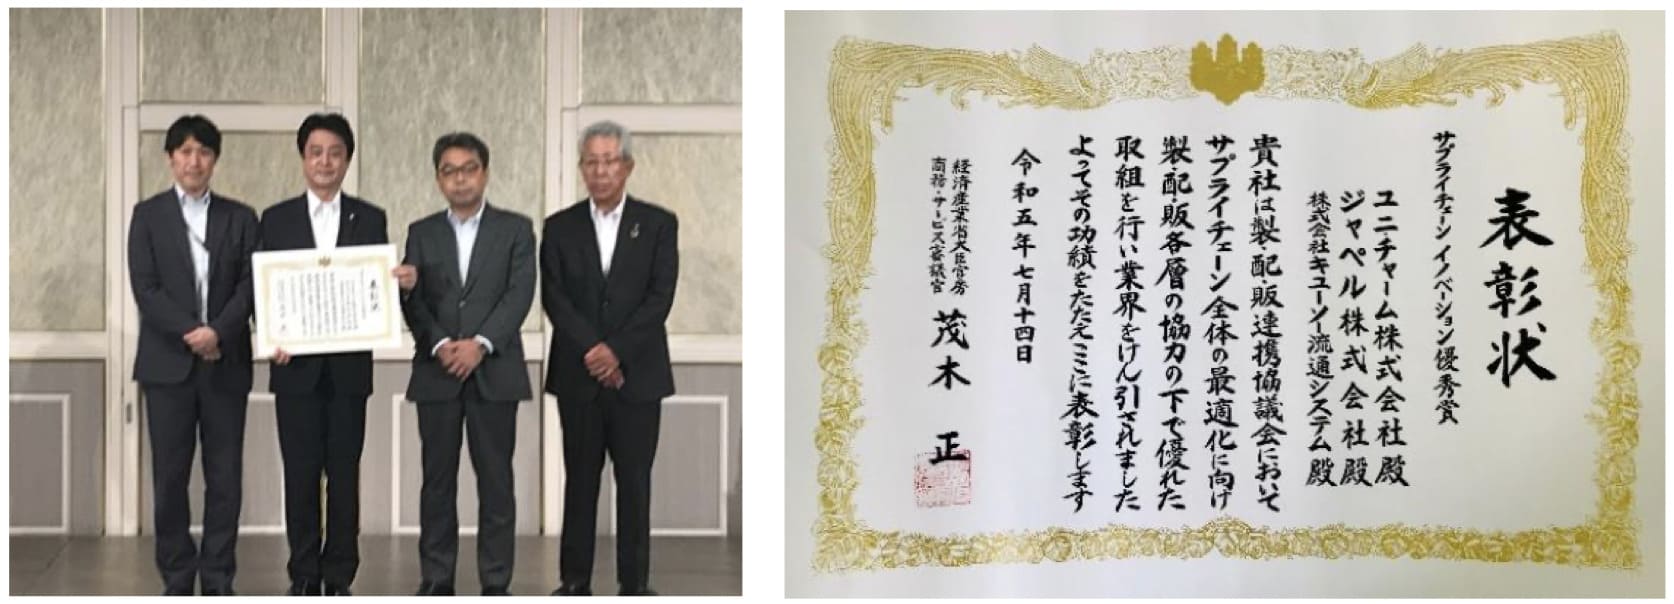 表彰状
サプライチェーン イノベーション優秀賞
ユニチャーム株式会社殿
ジャペル株式会社殿
株式会社キユーソー流通システム殿
貴社は製・配・販連携協議会において
サプライチェーン全体の最適化に向け
製・配・販各層の協力の下で優れた
取組を行い業界をけん引されました
よってその功績をたたえここに表彰します
令和五年七月十四日
経済産業省大臣官房
商務・サービス審議官
茂木 正